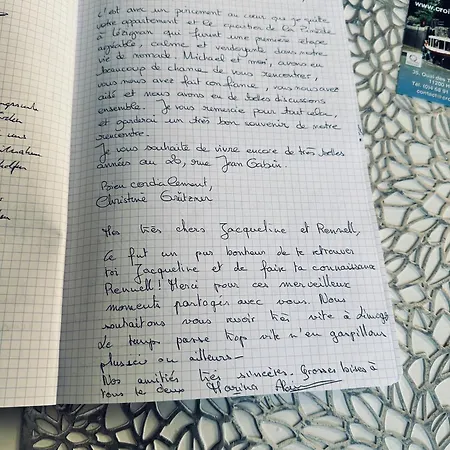 c'est avec un pincement au cœur que je quitte
votre appartement et le quartier de la Pinède
à Lézignan qui furent une première étape
agréable, calme et verdoyante dans notre
vie de nomade. Michael et moi, avons eu
beaucoup de chance de vous rencontrer,
vous nous avez fait confiance, vous nous avez
et nous avons eu de belles discussions
ensemble. Je vous remercie pour tout cela,
et garderai un très bon souvenir de notre
rencontre.
Je vous souhaite de vivre encore de très belles
années au 26, rue Jean Gabin.
Bien cordialement,
Christine
Mes très chers Jacqueline et Renwell,
Ce fut un pur bonheur de te retrouver
toi Jacqueline et de faire ta connaissance
Renwell! Merci pour ces merveilleux
moments partagés avec vous. Nous
souhaitons vous revoir très vite à Limoges
Le temps passe trop vite n'en gaspillons
plus ici ou ailleurs—
Nos amitiés très sincères. Grosses bises à
tous les deux Marina
www.croi
35, Quai des T
11200 H
Tél. (0)4 68 91
contact@cro